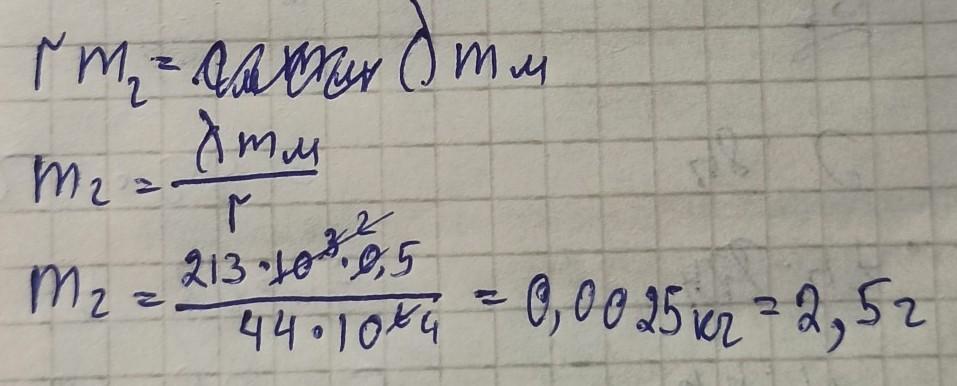 r m₂ = λ m м
m₂ = λ m м / r
m₂ = 213·10³ ²·0,5 / 44·10⁶ 4 = 0,0025 кг = 2,5 г